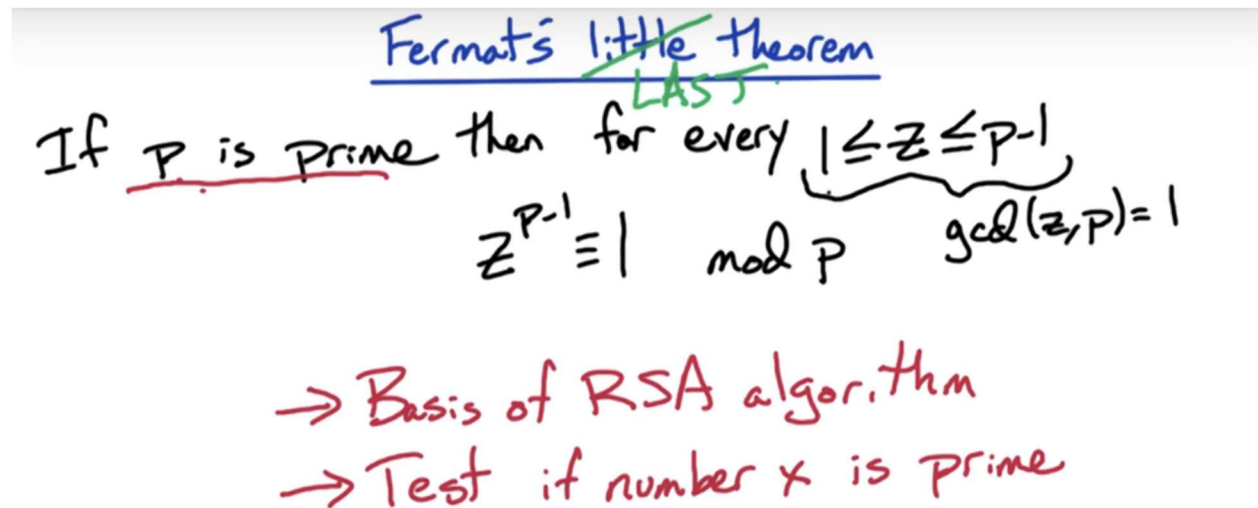 Fermat's little theorem
LAST
If p is prime then for every 1≤z≤p-1
z^{p-1}≡1 mod p gcd(z,p)=1
→ Basis of RSA algorithm
→ Test if number x is prime